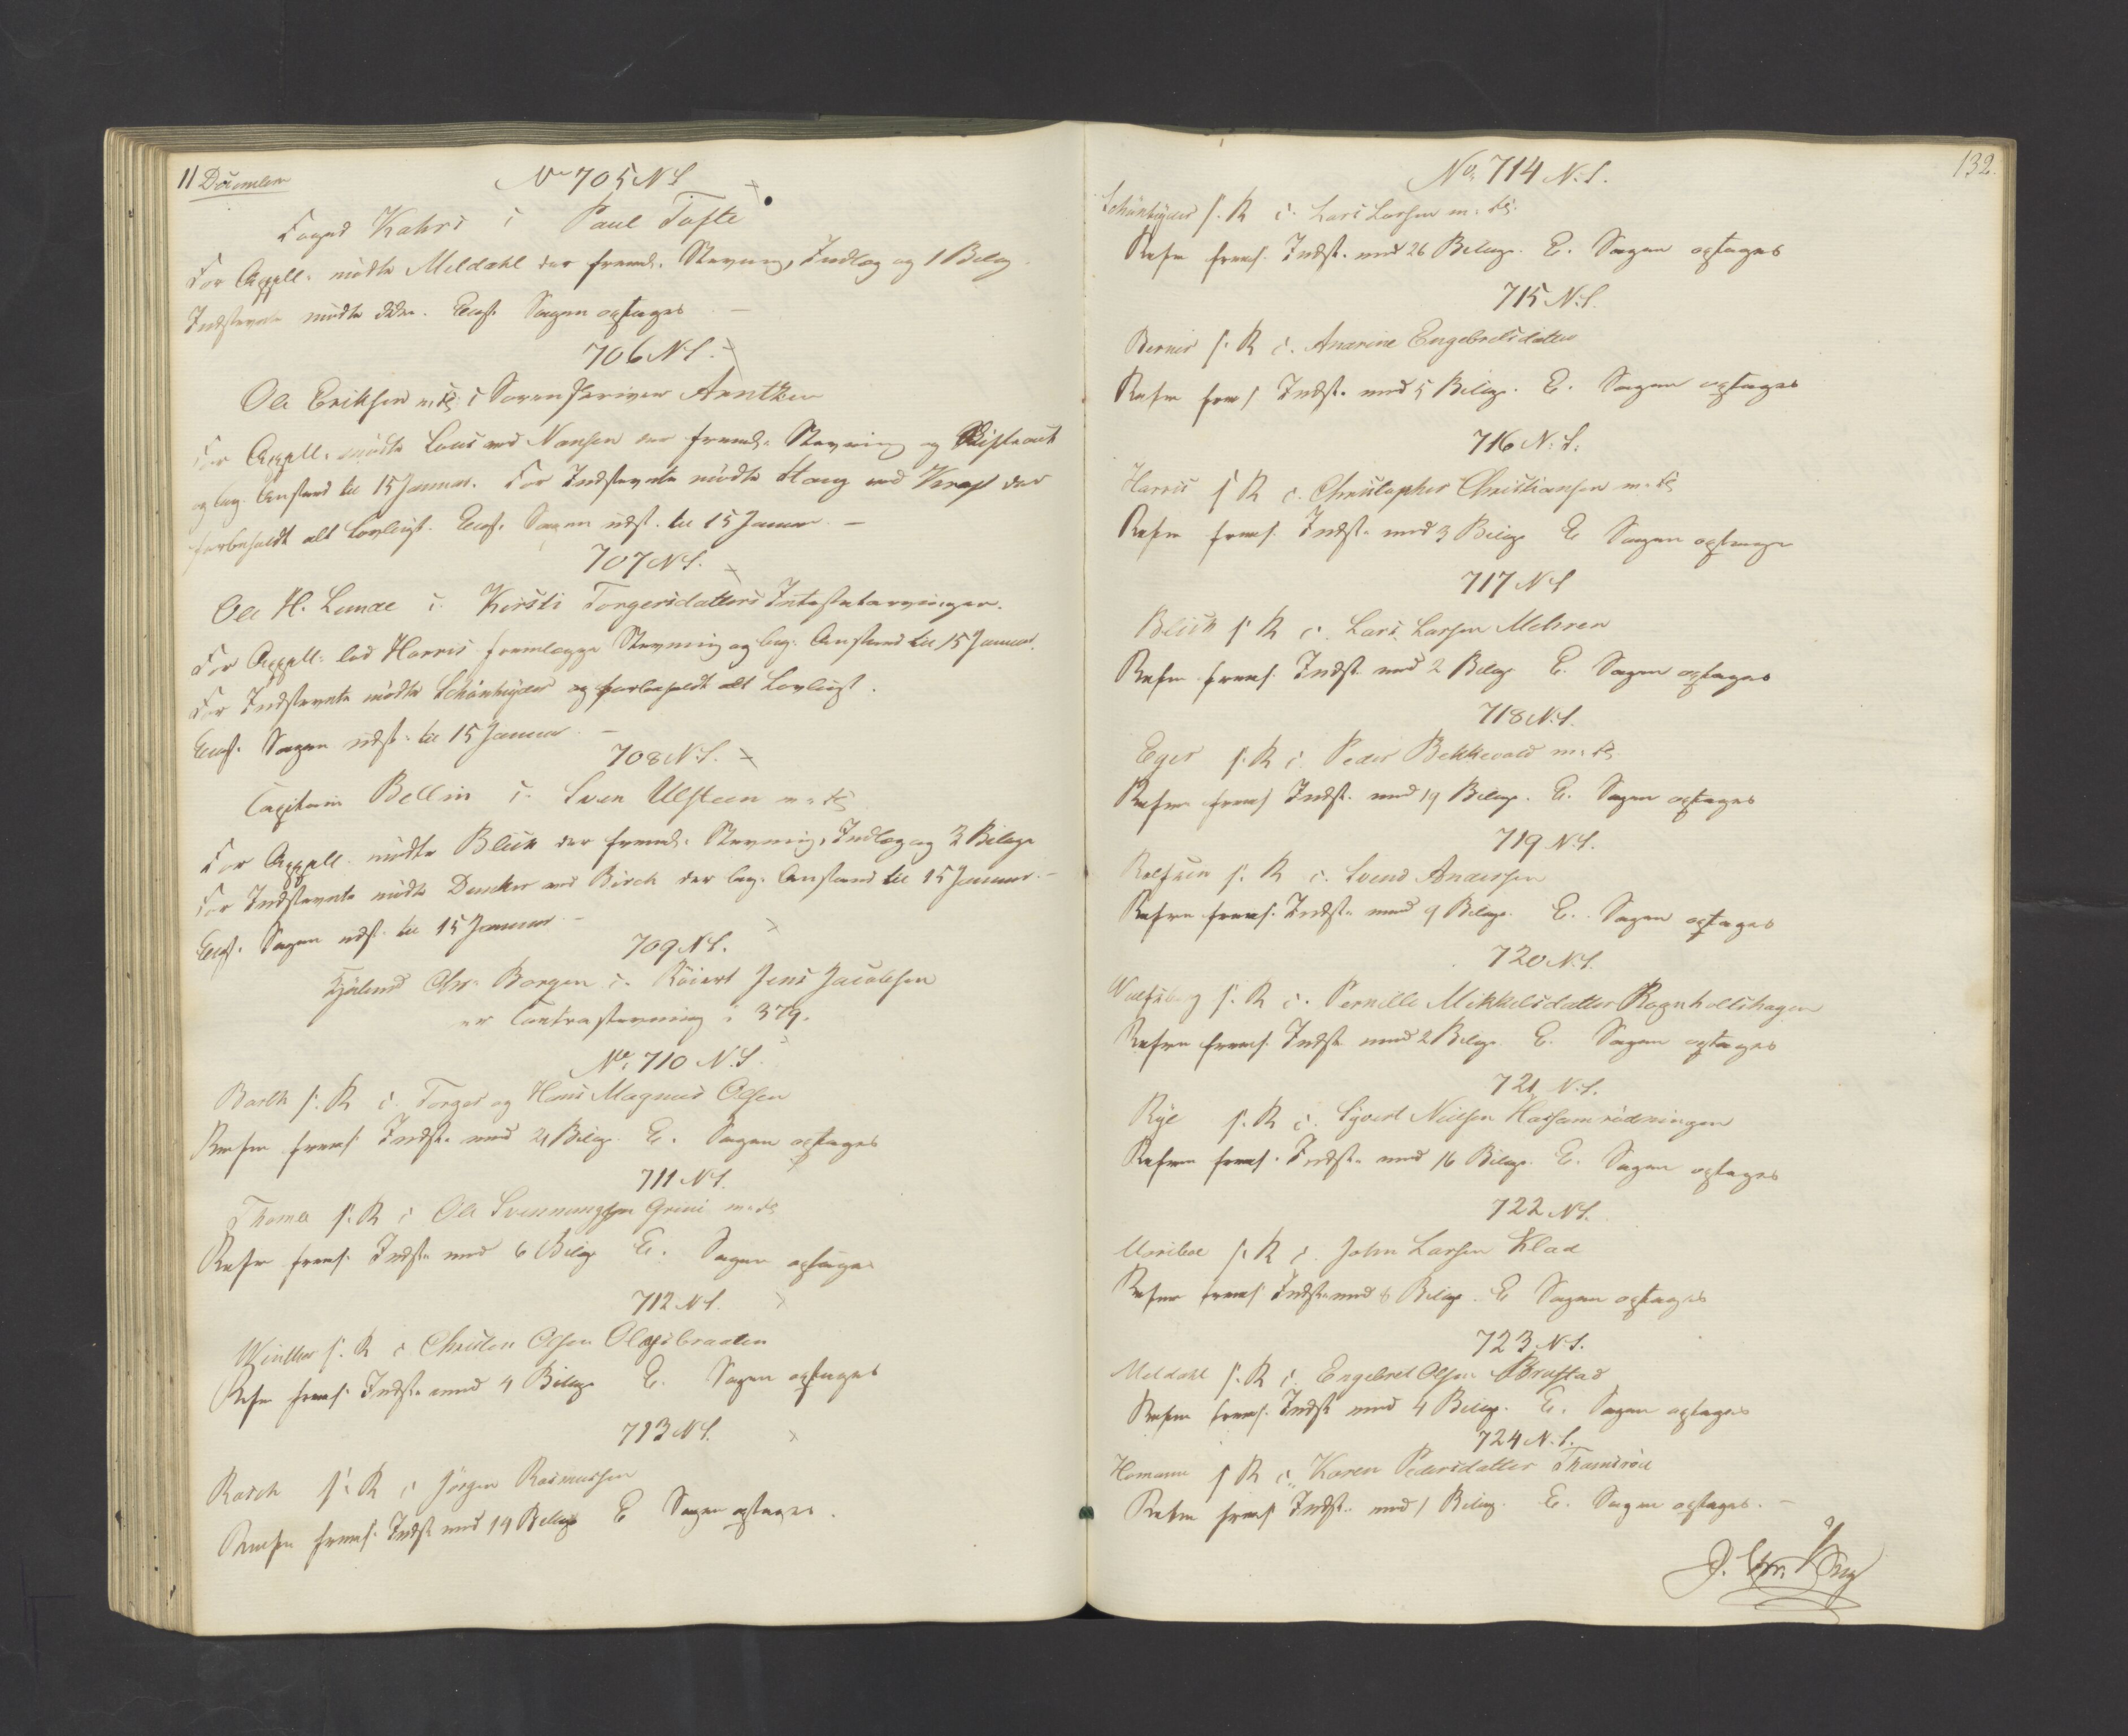 11 December
No 705 N S
Foged Kahrs c Paul Tofte
For Appell. mödte Meldahl der freml. Stevning, Indlæg og 1 Bilag
Indstevnte mödte ikke. Eragt. Sagen optages
706 N S.
Ole Eriksen m. fl. c Sorenskriver Arntzen
For Appell. mödte Lous ved Nansen der freml. Stevning og
og beg. Anstand til 15 Januar. For Indstevnte mödte Haug ved der
forbeholdt alt Lovligt. Eragt. Sagen uds. til 15 Januar. –
707 N S.
Ole H. Lunde c. Kirsti Torgersdatters Intestatarvinger.
For Appell. lod Harris fremlægge Stevning og beg. Anstand til 15 Januar.
For Indstevnte mödte Schönheyder og forbeholdt alt Lovligt.
Eragt. Sagen uds. til 15 Januar. –
708 N. S.
Capitain Bellin c. Sven Ulsteen m. fl.
For Appell. mödte Blich der freml. Stevning, Indlæg og 3 Bilage
For Indstevnte mödte Duncker ved Birch der beg. Anstand til 15 Januar. –
Eragt. Sagen uds. til 15 Januar –
709 N S.
Chr. Borgen c. Jens Jacobsen
er Contrastevning i 379.
No 710 N. S.
Barth s. R c. Torger og Hans Magnus Olsen
Refr freml. Indst. med 21 Bilag. E. Sagen optages
711 N S.
Thomle s. R c Ole Svennungsen Grini m. fl.
Refr freml. Indst. med 6 Bilag E. Sagen optages
712 N S.
Winther s. R c Christen Olsen Olgsbraaten
Refr freml. Indst. med 4 Bilage E. Sagen optages
713 N S.
Rasch s. R c Jörgen Rasmussen
Refr freml. Indst. med 14 Bilage E Sagen optages.
132.
No. 714 N. S.
Schönheyder s. R c. Lars Larsen m. fl.
Refr freml. Indst. med 26 Bilage. E. Sagen optages
715 N. S.
s. R c. Anarine Engebretsdatter
Refr freml Indst. med 5 Bilage. E. Sagen optages
716 N. S.
Harris s R c. Christopher Christiansen m. fl.
Refr freml. Indst. med 3 Bilage E Sagen optages
717 N S
Blich s. R c. Lars Larsen Mehren
Refr freml. Indst. med 2 Bilag E. Sagen optages
718 N. S.
Eger s. R c. Peder Bekkevold m. fl.
Refr freml Indst. med 19 Bilage. E. Sagen optages
719 N. S.
s. R c. Svend Andersen
Refr freml. Indst. med 9 Bilage. E. Sagen optages
720 N. S.
Wulfsberg s. R c. Pernille Mikkelsdatter Rognholtshagen
Refr freml. Indst. med 2 Bilage. E. Sagen optages
721 N. S.
Rye s. R c. Syvert Nielsen
Refr freml. Indst. med 16 Bilage. E. Sagen optages
722 N S.
Mariboe s. R c. John Larsen Klad
Refr freml Indst. med 8 Bilag. E Sagen optages
723 N. S.
Meldahl s. R c. Engebret Olsen
Refr freml. Indst. med 4 Bilag. E. Sagen optages
724 N. S.
Homann s R c. Karen Pedersdatter Thamsröe
Refr freml Indst. med 1 Bilag. E. Sagen optages. –